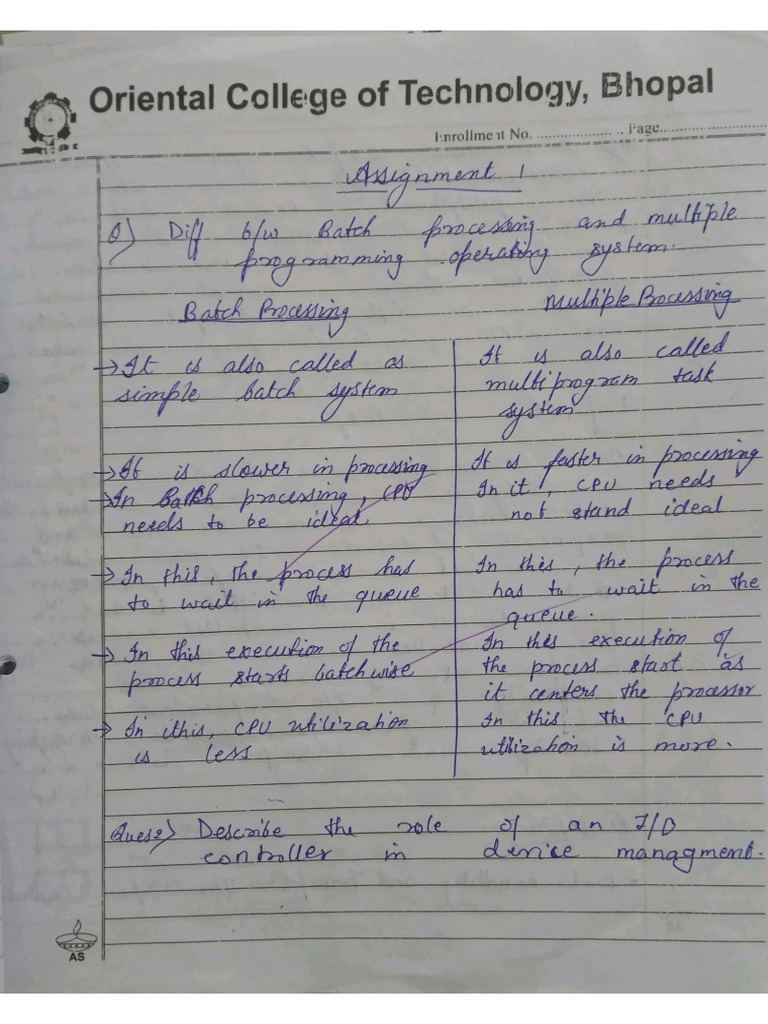 Oriental College of Technology, Bhopal
Enrollment No. .................... Page...........................
Assignment 1
Q) Diff b/w Batch processing and multiple
programming operating system.
Batch Processing
Multiple Processing
→ It is also called as
simple batch system
It is also called
multiprogram task
system
→ It is slower in processing
It is faster in processing
→ In Batch processing, CPU
needs to be ideal
In it, CPU needs
not stand ideal
→ In this, the process has
to wait in the queue
In this, the process
has to wait in the
queue.
→ In this execution of the
process starts batchwise
In this execution of
the process start as
it centers the processor
→ In this, CPU utilization
is less
In this the CPU
utilization is more.
Ques2) Describe the role of an I/O
controller in device managment.
AS